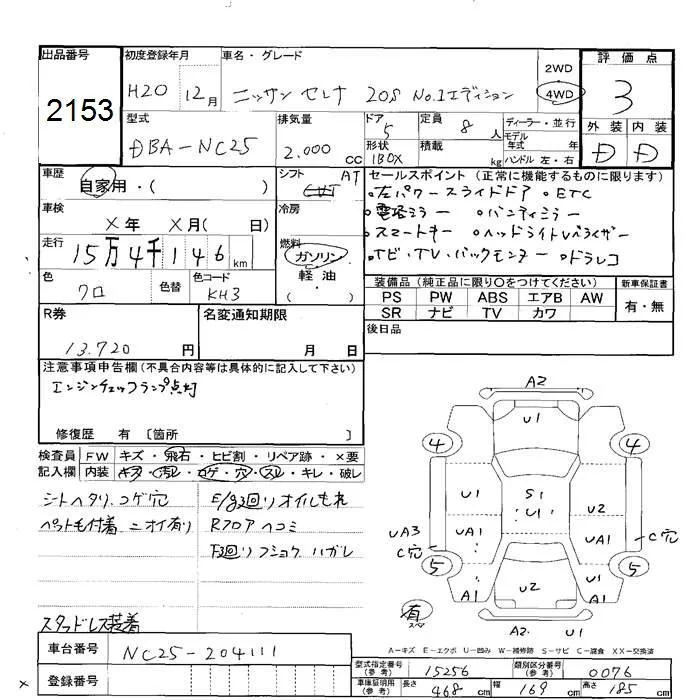 出品番号 初度登録年月 車名・グレード 2WD 評価点
2153 H20 12月 ニッサン セレナ 20S No.1エディション 4WD 3
型式 排気量 ドア 定員 ディーラー・並行 外装 内装
DBA-NC25 2.000cc 5 8人 モデル年式 年式 D D
形状 1BOX 積載 kg ハンドル 左・右
車歴 シフト AT セールスポイント(正常に機能するものに限ります)
自家用・( ) CVT 。左パワースライドドア 。ETC
車検 冷房 。電格ミラー 。バニティミラー
X年 X月( 日) 。スマートキー 。ヘッドライトレベライザー
走行 燃料 。ナビ・TV・バックモニター 。ドラレコ
15万4千146km ガソリン
軽油
( )
色 色替 色コード 装備品(純正品に限り〇をつけてください) 新車保証書
クロ KH3 PS PW ABS エアB AW 有・無
SR ナビ TV カワ
R券 名変通知期限 後日品
13.720円 月 日
注意事項申告欄(不具合内容等は具体的に記入して下さい)
エンジンチェックランプ点灯
修復歴 有 〔箇所 〕
検査員 FW キズ・飛石・ヒビ割・リペア跡・×要
記入欄 内装 キズ・汚レ・コゲ・穴・スレ・キレ・破レ
シートヘタリ.コゲ穴 E/g3回りオイルもれ
ペット毛付着 ニオイ有り Rフロアヘコミ
F3回リフショク ハガレ
スタッドレス装着
A2
U1
4 4
U1 S1 U2
U1
UA3 UA1 UA1 C穴
C穴
5 5
A1 U2 U1
A1
有
スペア
A2. U1
A-キズ E-エクボ U-凹み W-補修跡 S-サビ C-腐食 XX-交換済
車台番号 NC25-204111 型式指定番号(参考) 15256 類別区分番号(参考) 0076
登録番号 車庫証明用(参考) 長さ 468cm 幅 169cm 高さ 185cm
×